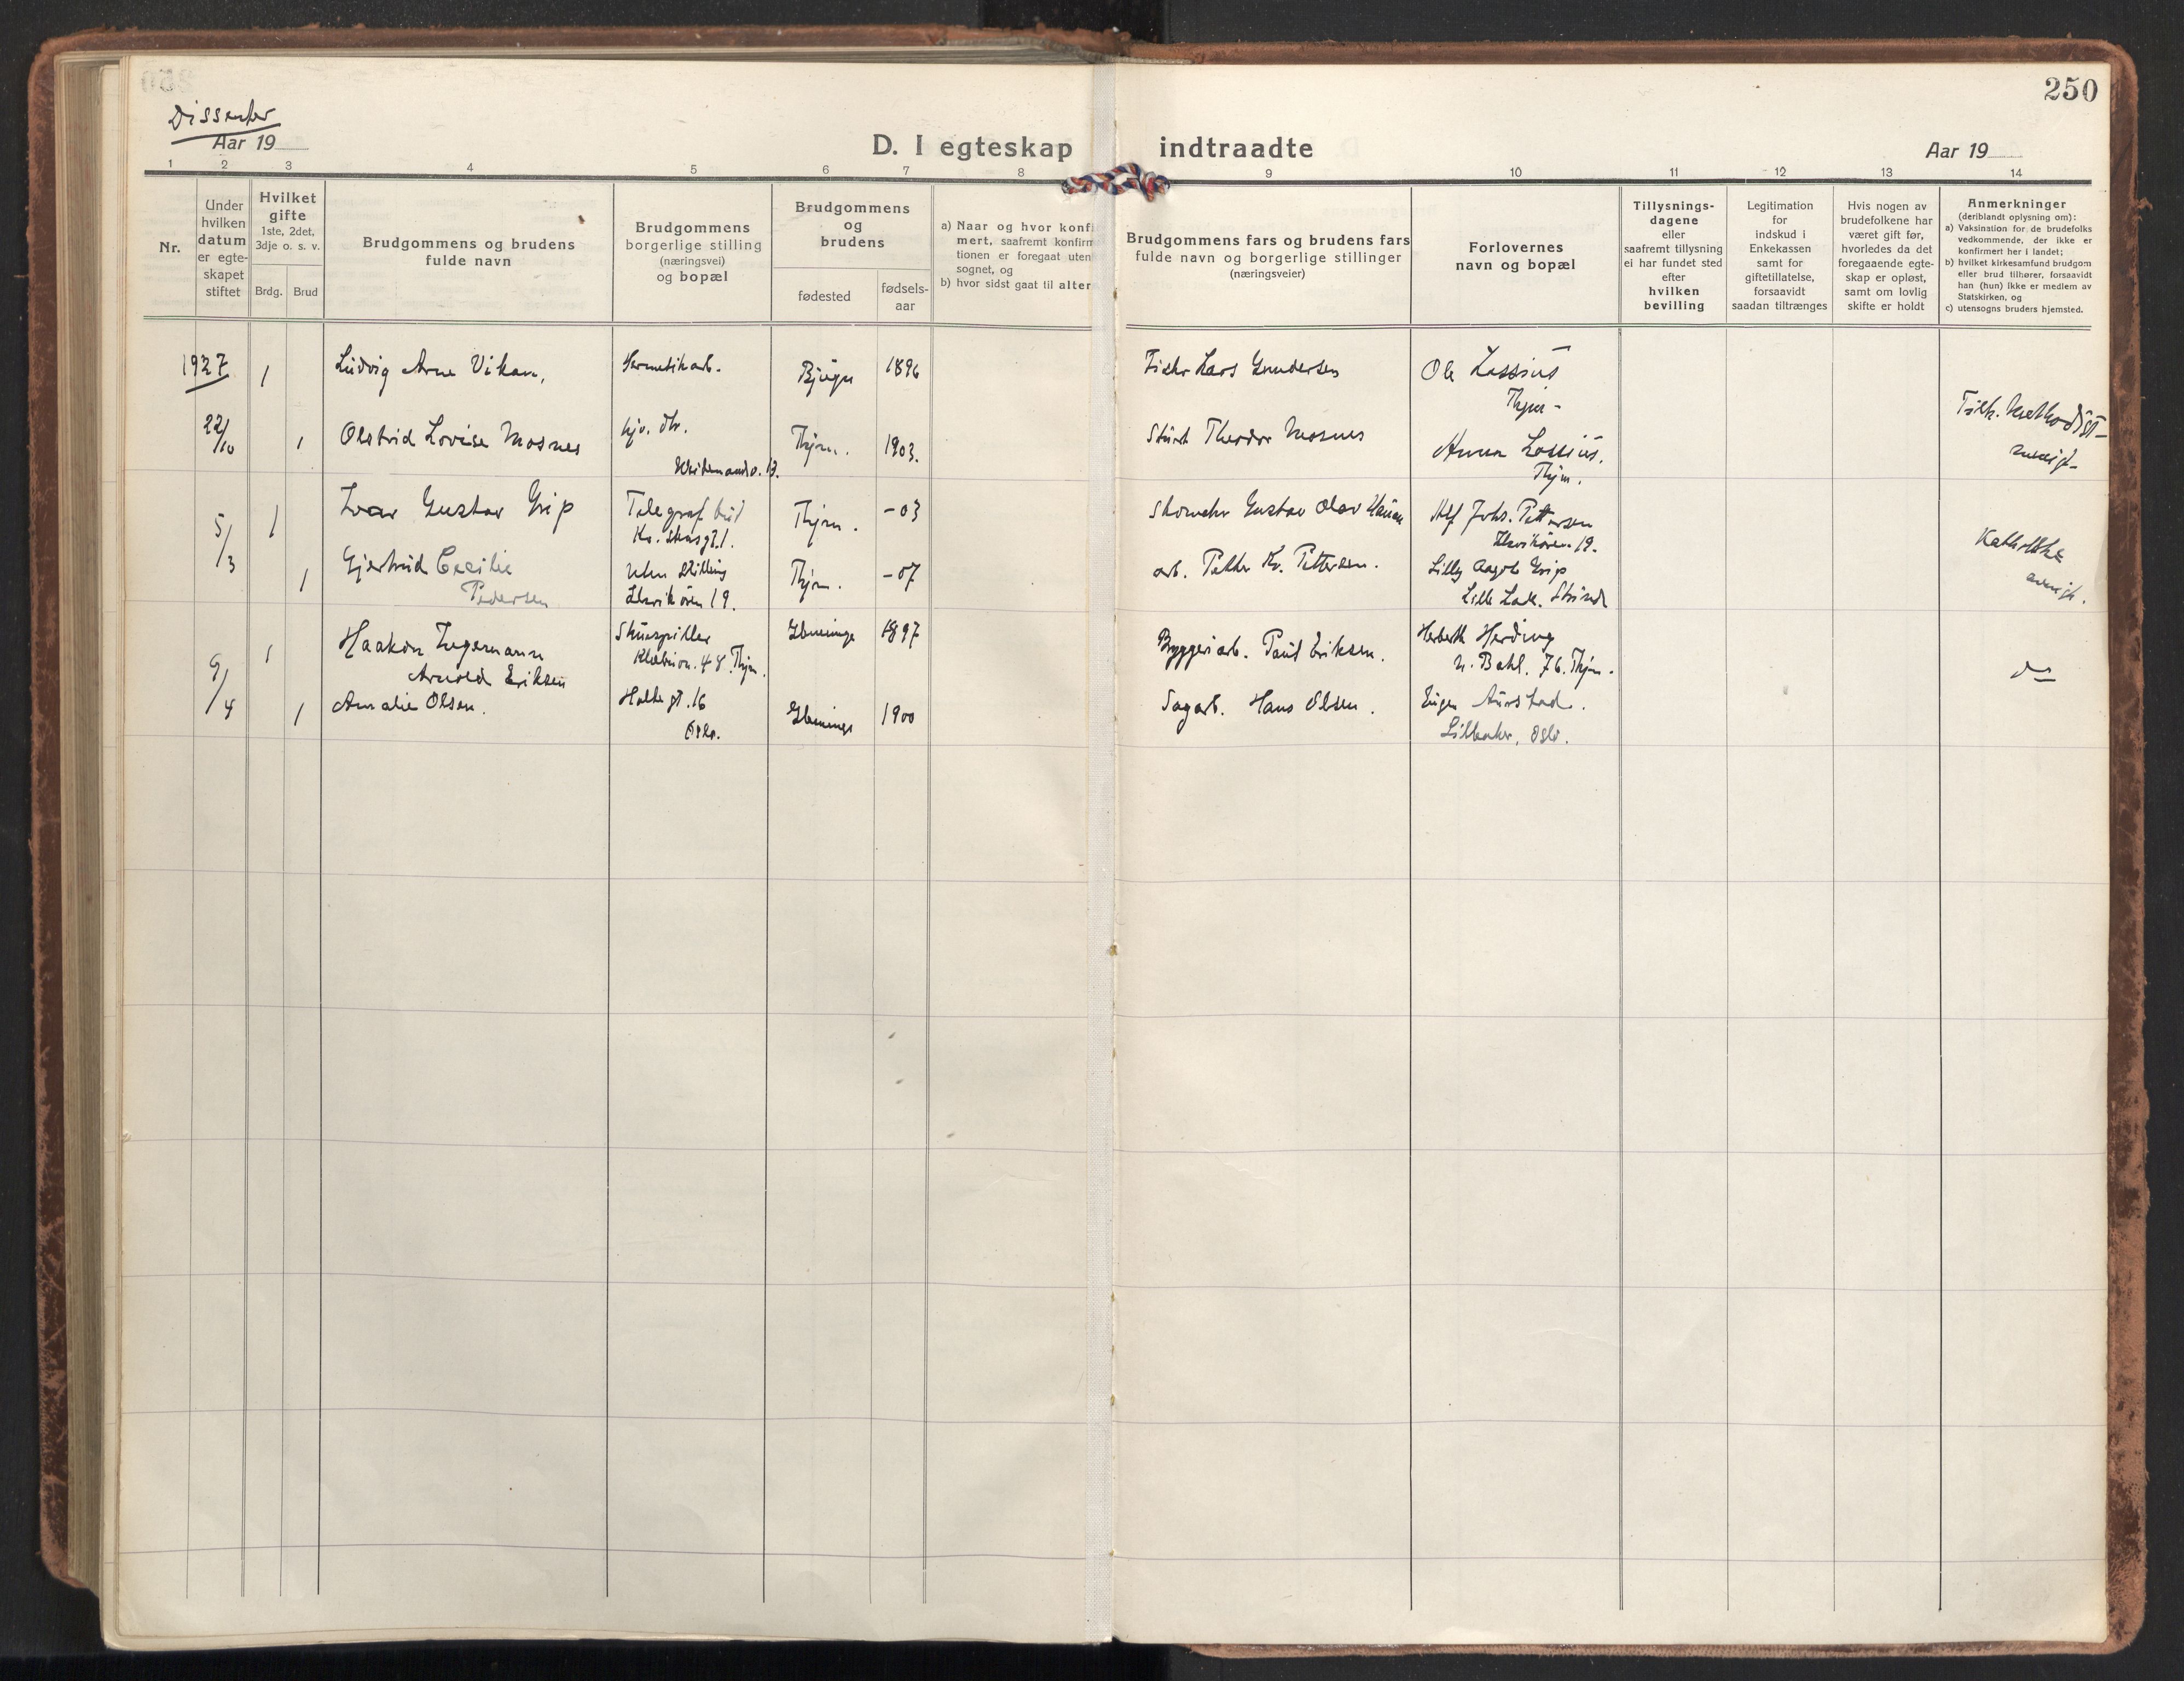 250
Dissenter
Aar 19
D. I egteskap indtraadte
Aar 19
1 2 3 4 5 6 7 8 9 10 11 12 13 14
Nr.
Under
hvilken
datum
er egte-
skapet
stiftet
Hvilket
gifte
1ste, 2det,
3dje o. s. v.
Brdg. Brud
Brudgommens og brudens
fulde navn
Brudgommens
borgerlige stilling
(næringsvei)
og bopæl
Brudgommens
og
brudens
fødested
fødsels-
aar
a) Naar og hvor konfi
mert, saafremt konfirm
tionen er foregaat uten
sognet, og
b) hvor sidst gaat til alter
Brudgommens fars og brudens fars
fulde navn og borgerlige stillinger
(næringsveier)
Forlovernes
navn og bopæl
Tillysnings-
dagene
eller
saafremt tillysning
ei har fundet sted
efter
hvilken
bevilling
Legitimation
for
indskud i
Enkekassen
samt for
giftetillatelse,
forsaavidt
saadan tiltrænges
Hvis nogen av
brudefolkene har
været gift før,
hvorledes da det
foregaaende egte-
skap er opløst,
samt om lovlig
skifte er holdt
Anmerkninger
(deriblandt oplysning om):
a) Vaksination for de brudefolks
vedkommende, der ikke er
konfirmert her i landet;
b) hvilket kirkesamfund brudgom
eller brud tilhører, forsaavidt
han (hun) ikke er medlem av
Statskirken, og
c) utensogns bruders hjemsted.
1927 1 Ludvig Arne Vikan, Hermetikarb. Bjugn 1896 Fisker Lars Gundersen Ole Lossius
Thjm.
22/10 1 Olstrid Lovise Mosnes Thjm. 1903. Theodor Mosnes Anna Lossius.
Thjm.
5/3 1 Ivar Gustav Grip Telegrafbud Thjm. -03 Skomaker Gustav Olav Alf Johs. Pettersen
Ilsvikøren 19.
1 Gjertrud Cecilie uten stilling Thjm. -07 arb. Petter Kr. Pettersen. Lilly Aagot Grip
Pedersen Ilsvikøren 19. Lille Lade. Strinda
Katholske
9/4 1 Haakon Ingemann Skuespiller 1897 Bryggeriarb. Paul Eriksen. Herberth Herding
Arnold Eriksen Klæbuv. 48 Thjm. n. Bakl. 76. Thjm.
do
1 Amalie Olsen. 16 1900 Sagarb. Hans Olsen. Aurstad.
Oslo. Lilleaker, Oslo.